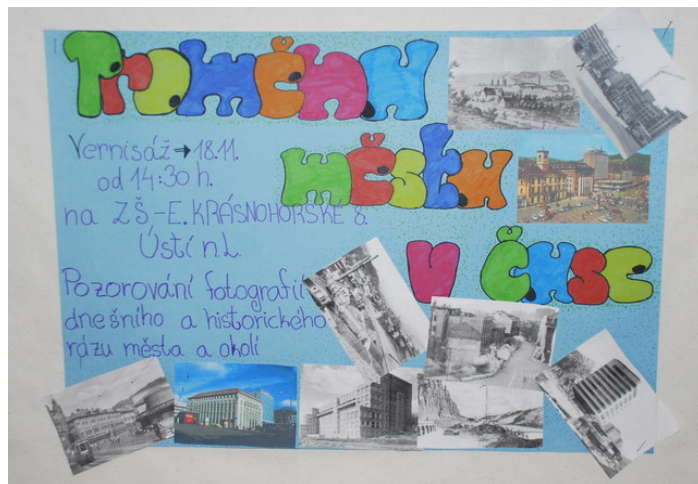 Proměny
města
v čase
Vernisáž → 18.11.
od 14:30 h.
na ZŠ-E. KRÁSNOHORSKÉ 8.
Ústí n.L.
Pozorování fotografií
dnešního a historického
rázu města a okolí